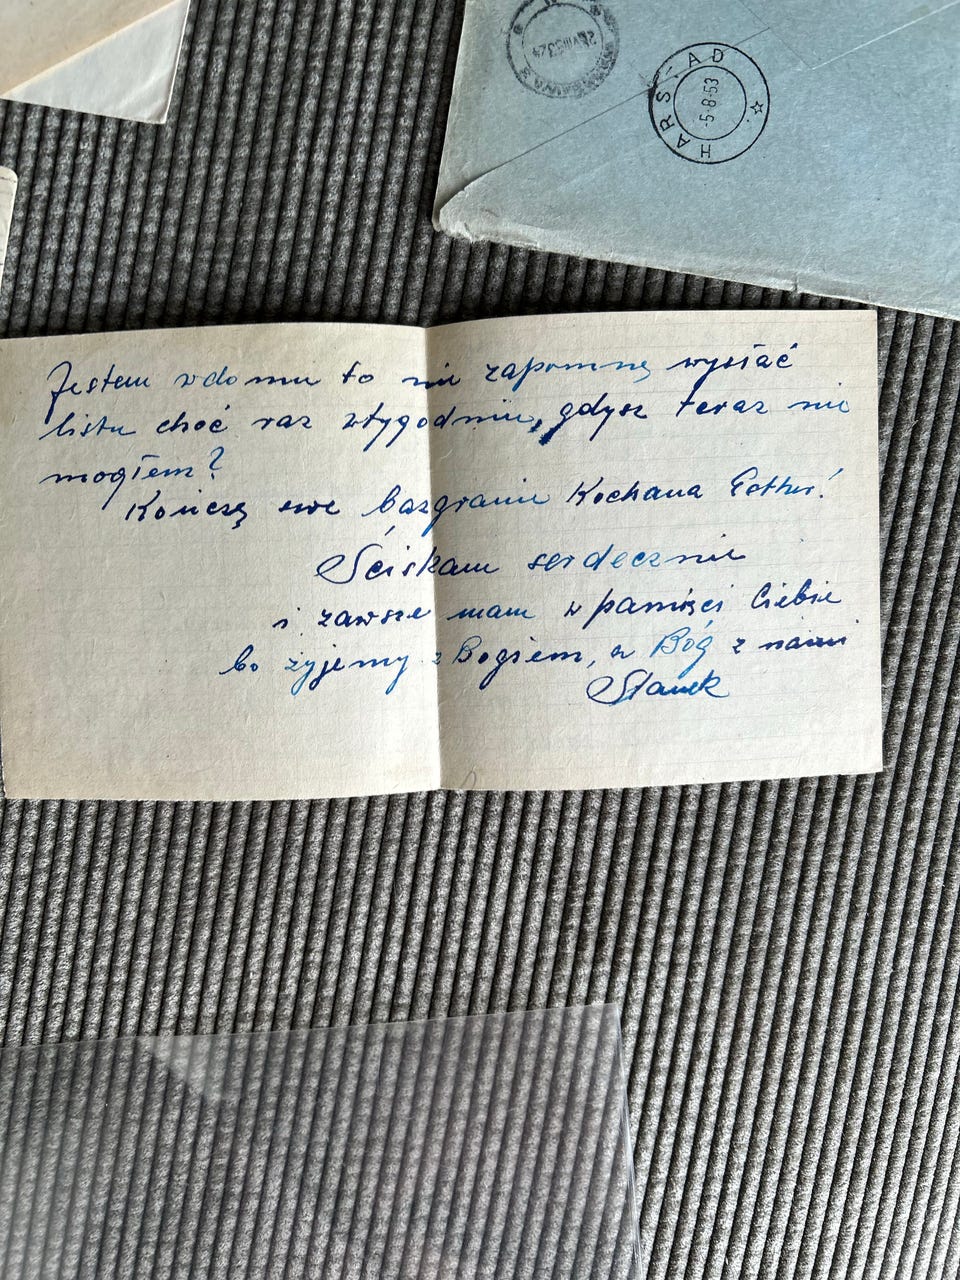 HARSTAD
-5.8.53
Jestem wdomu to nie zapomnę wysłać
listu choć raz wtygodniu, gdysz teraz nie
mogłem?
Kończę swe bazgranie Kochana Esther!
Ściskam serdecznie
i zawsze mam w pamięci Ciebie
bo żyjemy z Bogiem, a Bóg z nami
Stanek